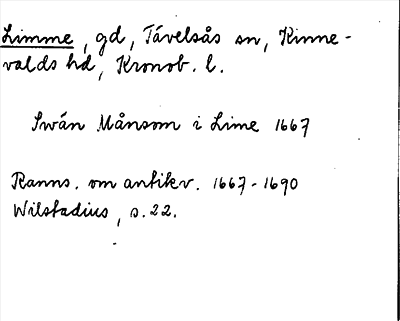 Limme, gd, Tävelsås sn, Kinne-
valds hd, Kronob. l.
Swän Månsson i Lime 1667
Ranns. om antikv. 1667-1690
Wilstadius, s. 22.